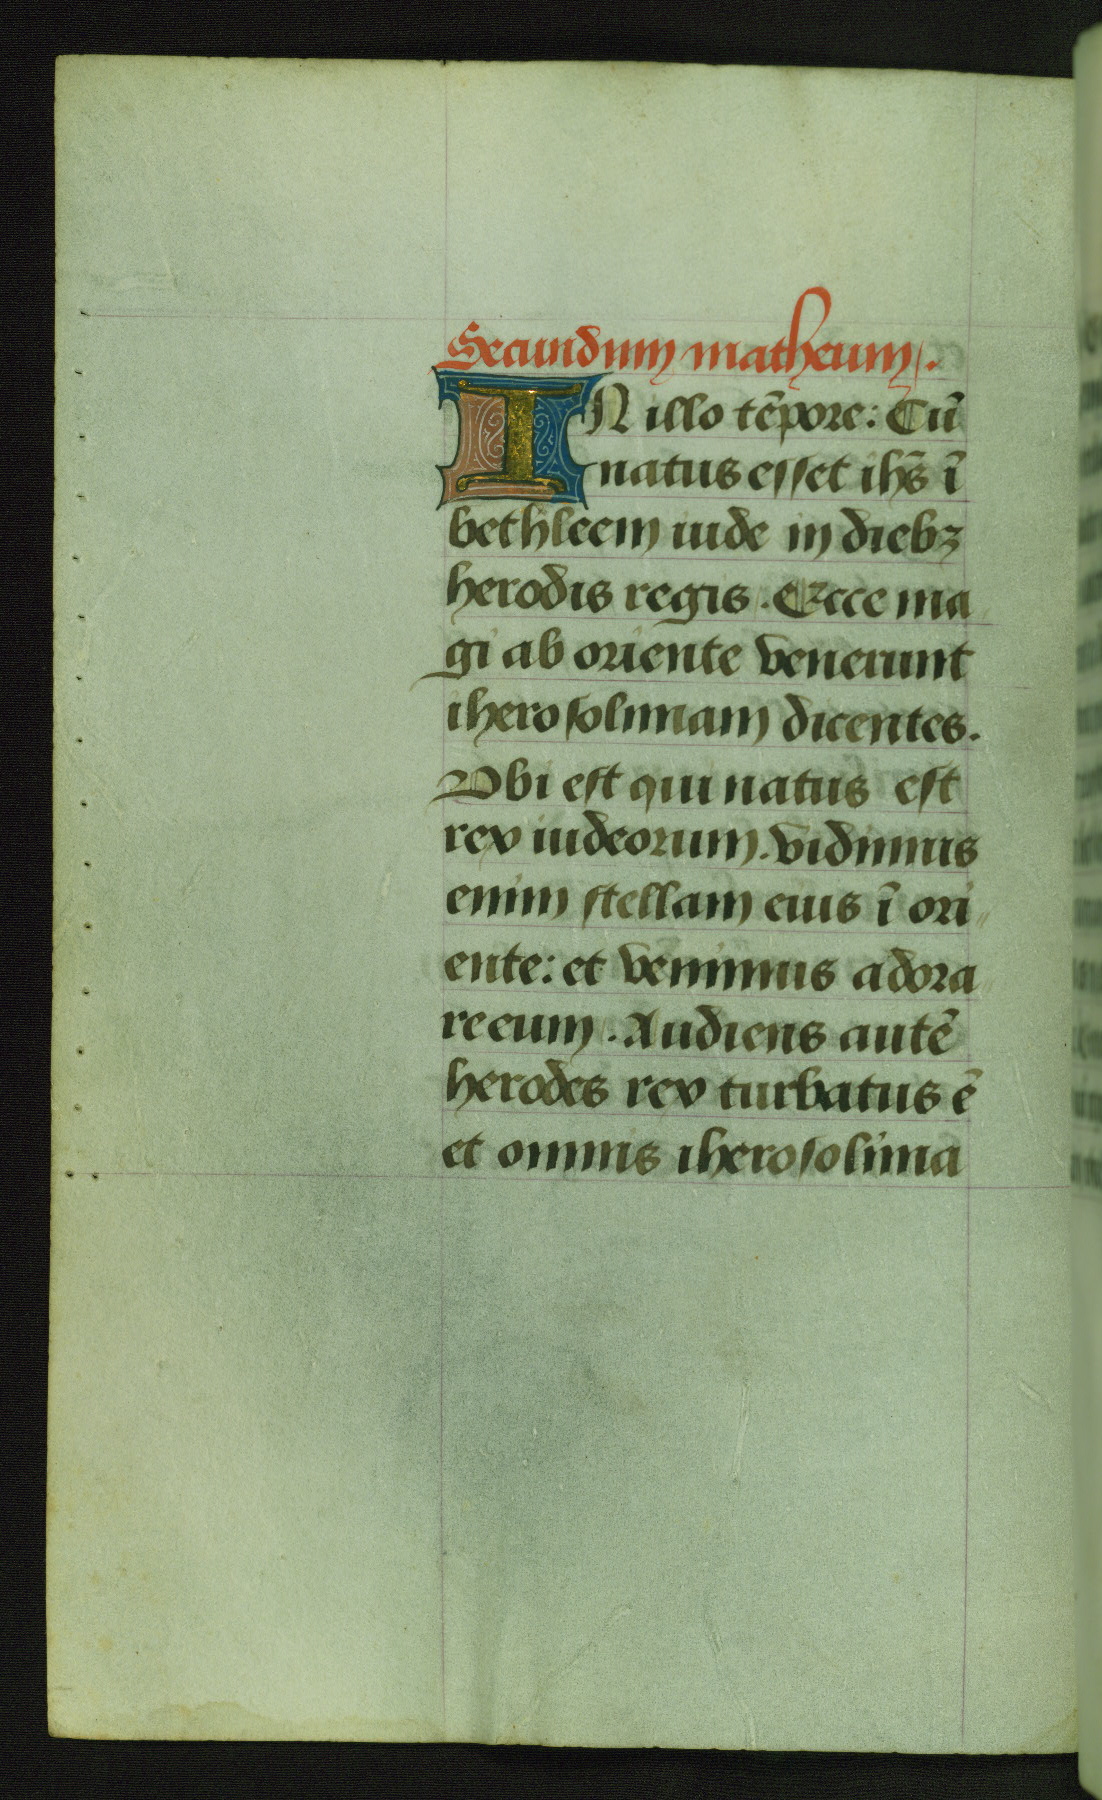 Secundum matheum.
IN illo tēpore: Cū
natus esset ihs̄ ī
bethleem iude in diebꝫ
herodis regis. Ecce ma
gi ab oriente venerunt
iherosolimam dicentes.
Vbi est qui natus est
rex iudeorum. vidimus
enim stellam eius ī ori
ente: et venimus adora
re eum. Audiens autē
herodes rex turbatus ē
et omnis iherosolima